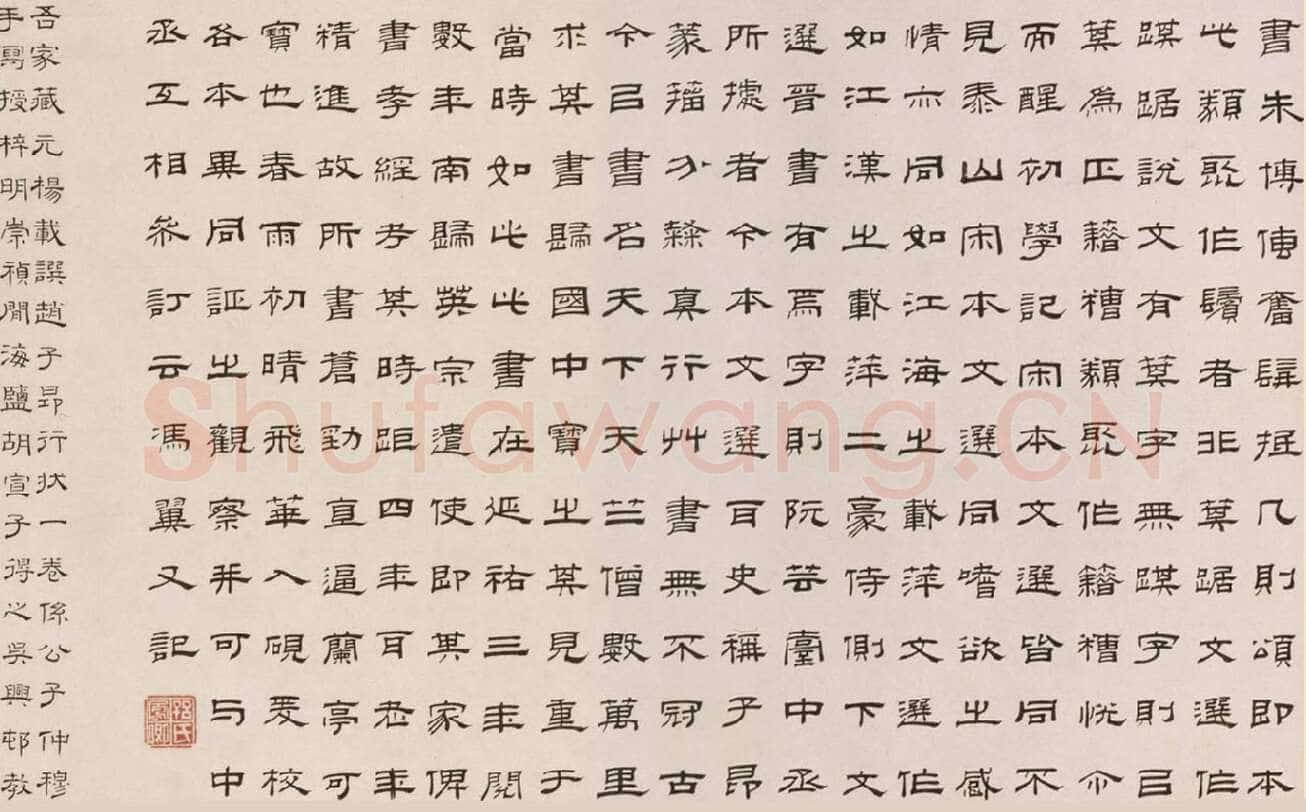 書朱博傳奮髯抵几則頌即本
此類聚作鬚者非萁踞文選作
踑踞說文有萁字無踑字則已
萁為正籍糟類聚作籍糟恍亦
而醒初學記宋本文選皆同不
見泰山宋本文選同嗜欲之感
情亦同如江海之載萍文選作
如江漢之載萍二豪侍側下文
選晉書有焉字則阮芸臺中丞
所據者今本文選耳史稱子昂
篆籀分隸真行艸書無不冠古
今已書名天下天竺僧數萬里
求其書歸國中寶之其見重于
當時如此此書在延祐三年閱
數年南歸英宗遣使即其家俾
書孝經考其時距四年耳老年
精進故所書蒼勁直逼蘭亭可
寶也春雨初晴飛華入硯爰校
各本異同証之觀察并可与中
丞互相參訂云馮翼又記
吾家藏元楊載譔趙子昂行狀一卷係公子仲穆
手寫授梓明崇禎間海鹽胡宣子得之吳興邨教
Shufawang.CN